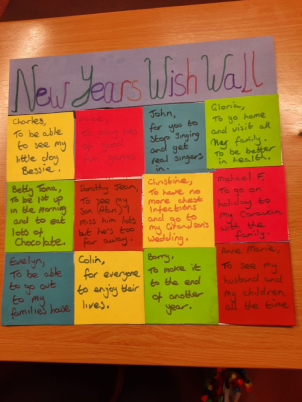 New Years Wish Wall
Charles,
To be able
to see my
little dog
Bessie.
John,
for you to
Stop Singing
and get
real singers
in.
Gloria,
To go home
and visit all
my family.
To be better
in health.
Betty Toma,
To be lit up
in the morning
and to eat
lots of
Chocolate.
Dorothy Jean,
To see my
Son (Alan) I
miss him lots
but he's too
far away.
Christine,
To have no
more chest
Infections
and go to
my Grandsons
Wedding.
Michael F,
To go on
holiday to
my Caravan
with the
family.
Evelyn,
To be able
to go out
to my
families house
Colin,
for everyone
to enjoy their
lives.
Barry,
To make it
to the end
of another
year.
Anne Marie,
To see my
husband and
my children
all the time